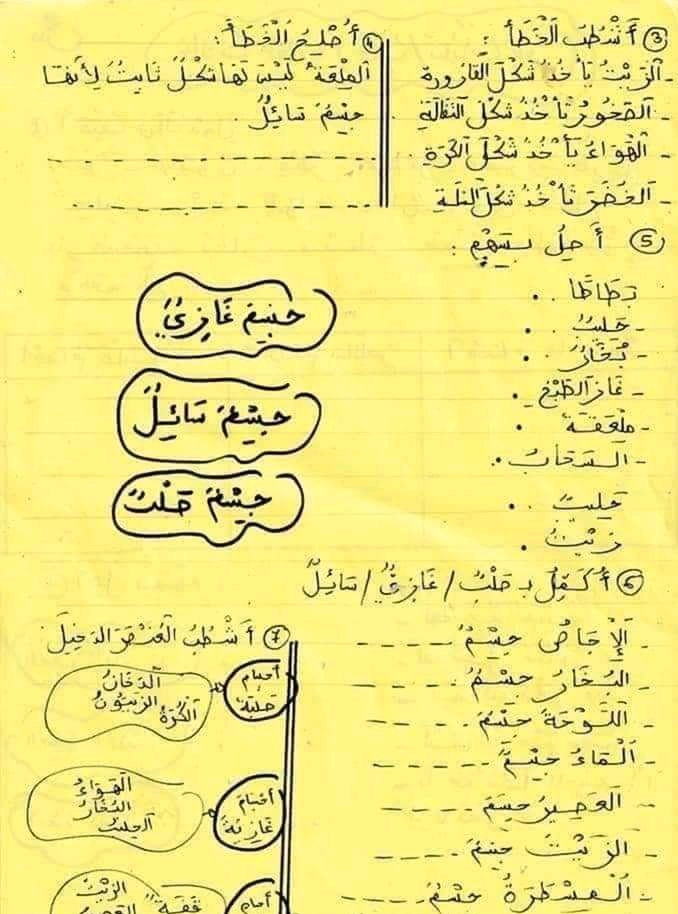 ③ أَشْطُبُ الْخَطَأَ :
- الزَّيْتُ يَأْخُذُ شَكْلَ الْقَارُورَةِ
- الصَّخُورُ تَأْخُذُ شَكْلَ
- الْهَوَاءُ يَأْخُذُ شَكْلَ الْكُرَةِ
- الْخُضَرُ تَأْخُذُ شَكْلَ السَّلَّةِ
④ أُصْلِحُ الْخَطَأَ :
الْمِلْعَقَةُ لَيْسَ لَهَا شَكْلٌ ثَابِتٌ لِأَنَّهَا
جِسْمٌ سَائِلٌ
⑤ أَصِلُ بِسَهْمٍ :
بَطَاطَا
- حَلِيبٌ
- بُخَارٌ
- غَازُ الطَّبْخِ
- مِلْعَقَةٌ
- السَّحَابُ
حَلِيبٌ
زَيْتٌ
جِسْمٌ غَازِيٌّ
جِسْمٌ سَائِلٌ
جِسْمٌ صَلْبٌ
⑥ أُكْمِلُ بِـ صَلْبٌ / غَازِيٌّ / سَائِلٌ
- الْإِجَاصُ جِسْمٌ
- الْبُخَارُ جِسْمٌ
- اللَّوْحَةُ جِسْمٌ
- الْمَاءُ جِسْمٌ
- الْعَصِيرُ جِسْمٌ
- الزَّيْتُ جِسْمٌ
- الْمِسْطَرَةُ جِسْمٌ
⑦ أَشْطُبُ الْعُنْصُرَ الدَّخِيلَ
أجسام
صلبة
الدُّخَانُ
الزَّيْتُونُ
الْكُرَةُ
أجسام
غازية
الْهَوَاءُ
الْبُخَارُ
الْحَلِيبُ
الزَّيْتُ